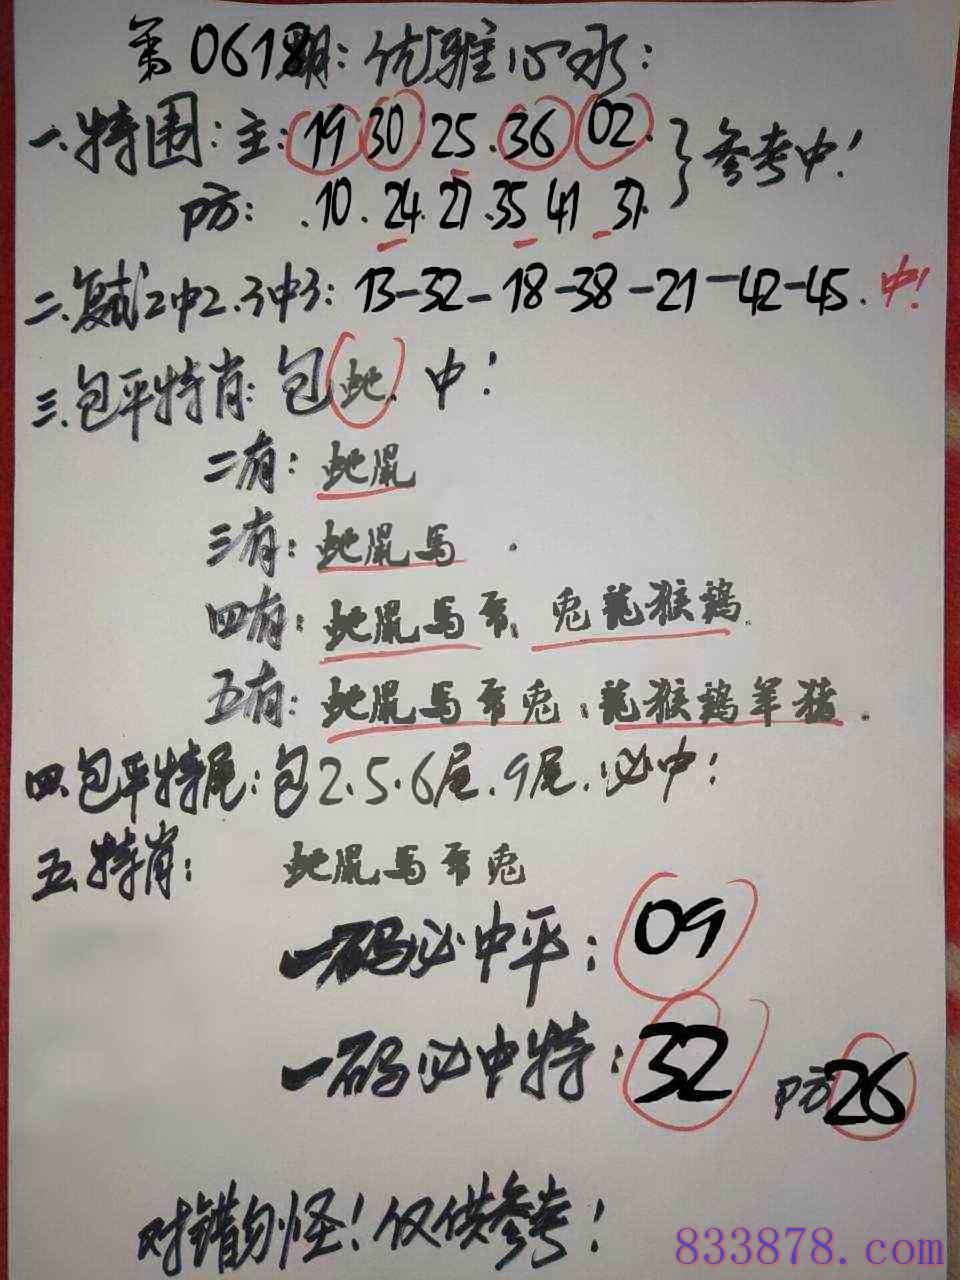 第0618期：优雅心水：
一.特围：主：19 30 25.36 02.}参考中！
防：.10.24.27.35 41 37.
二.复试2中2.3中3：13-32-18-38-21-42-45.中！
三.包平特肖：包蛇.中！
二有：蛇鼠
三有：蛇鼠馬.
四有：蛇鼠馬.兔龍猴鷄.
五有：蛇鼠馬兔：龍猴鷄羊猪.
四.包平特尾：包2.5.6尾.9尾.必中！
五.特肖：蛇鼠馬兔
一码必中平：09
一码必中特：32 防26
对错勿怪！仅供参考！
833878.com